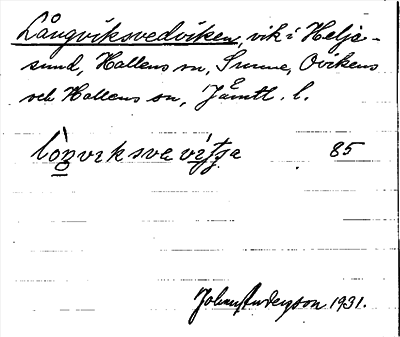 Långviksvedviken, vik i Helje-
sund, Hallens sn, Sunne, Ovikens
och Hallens sn, Jämtl. l.
lòŋviksvavítja 85
Johan Anderson 1931.